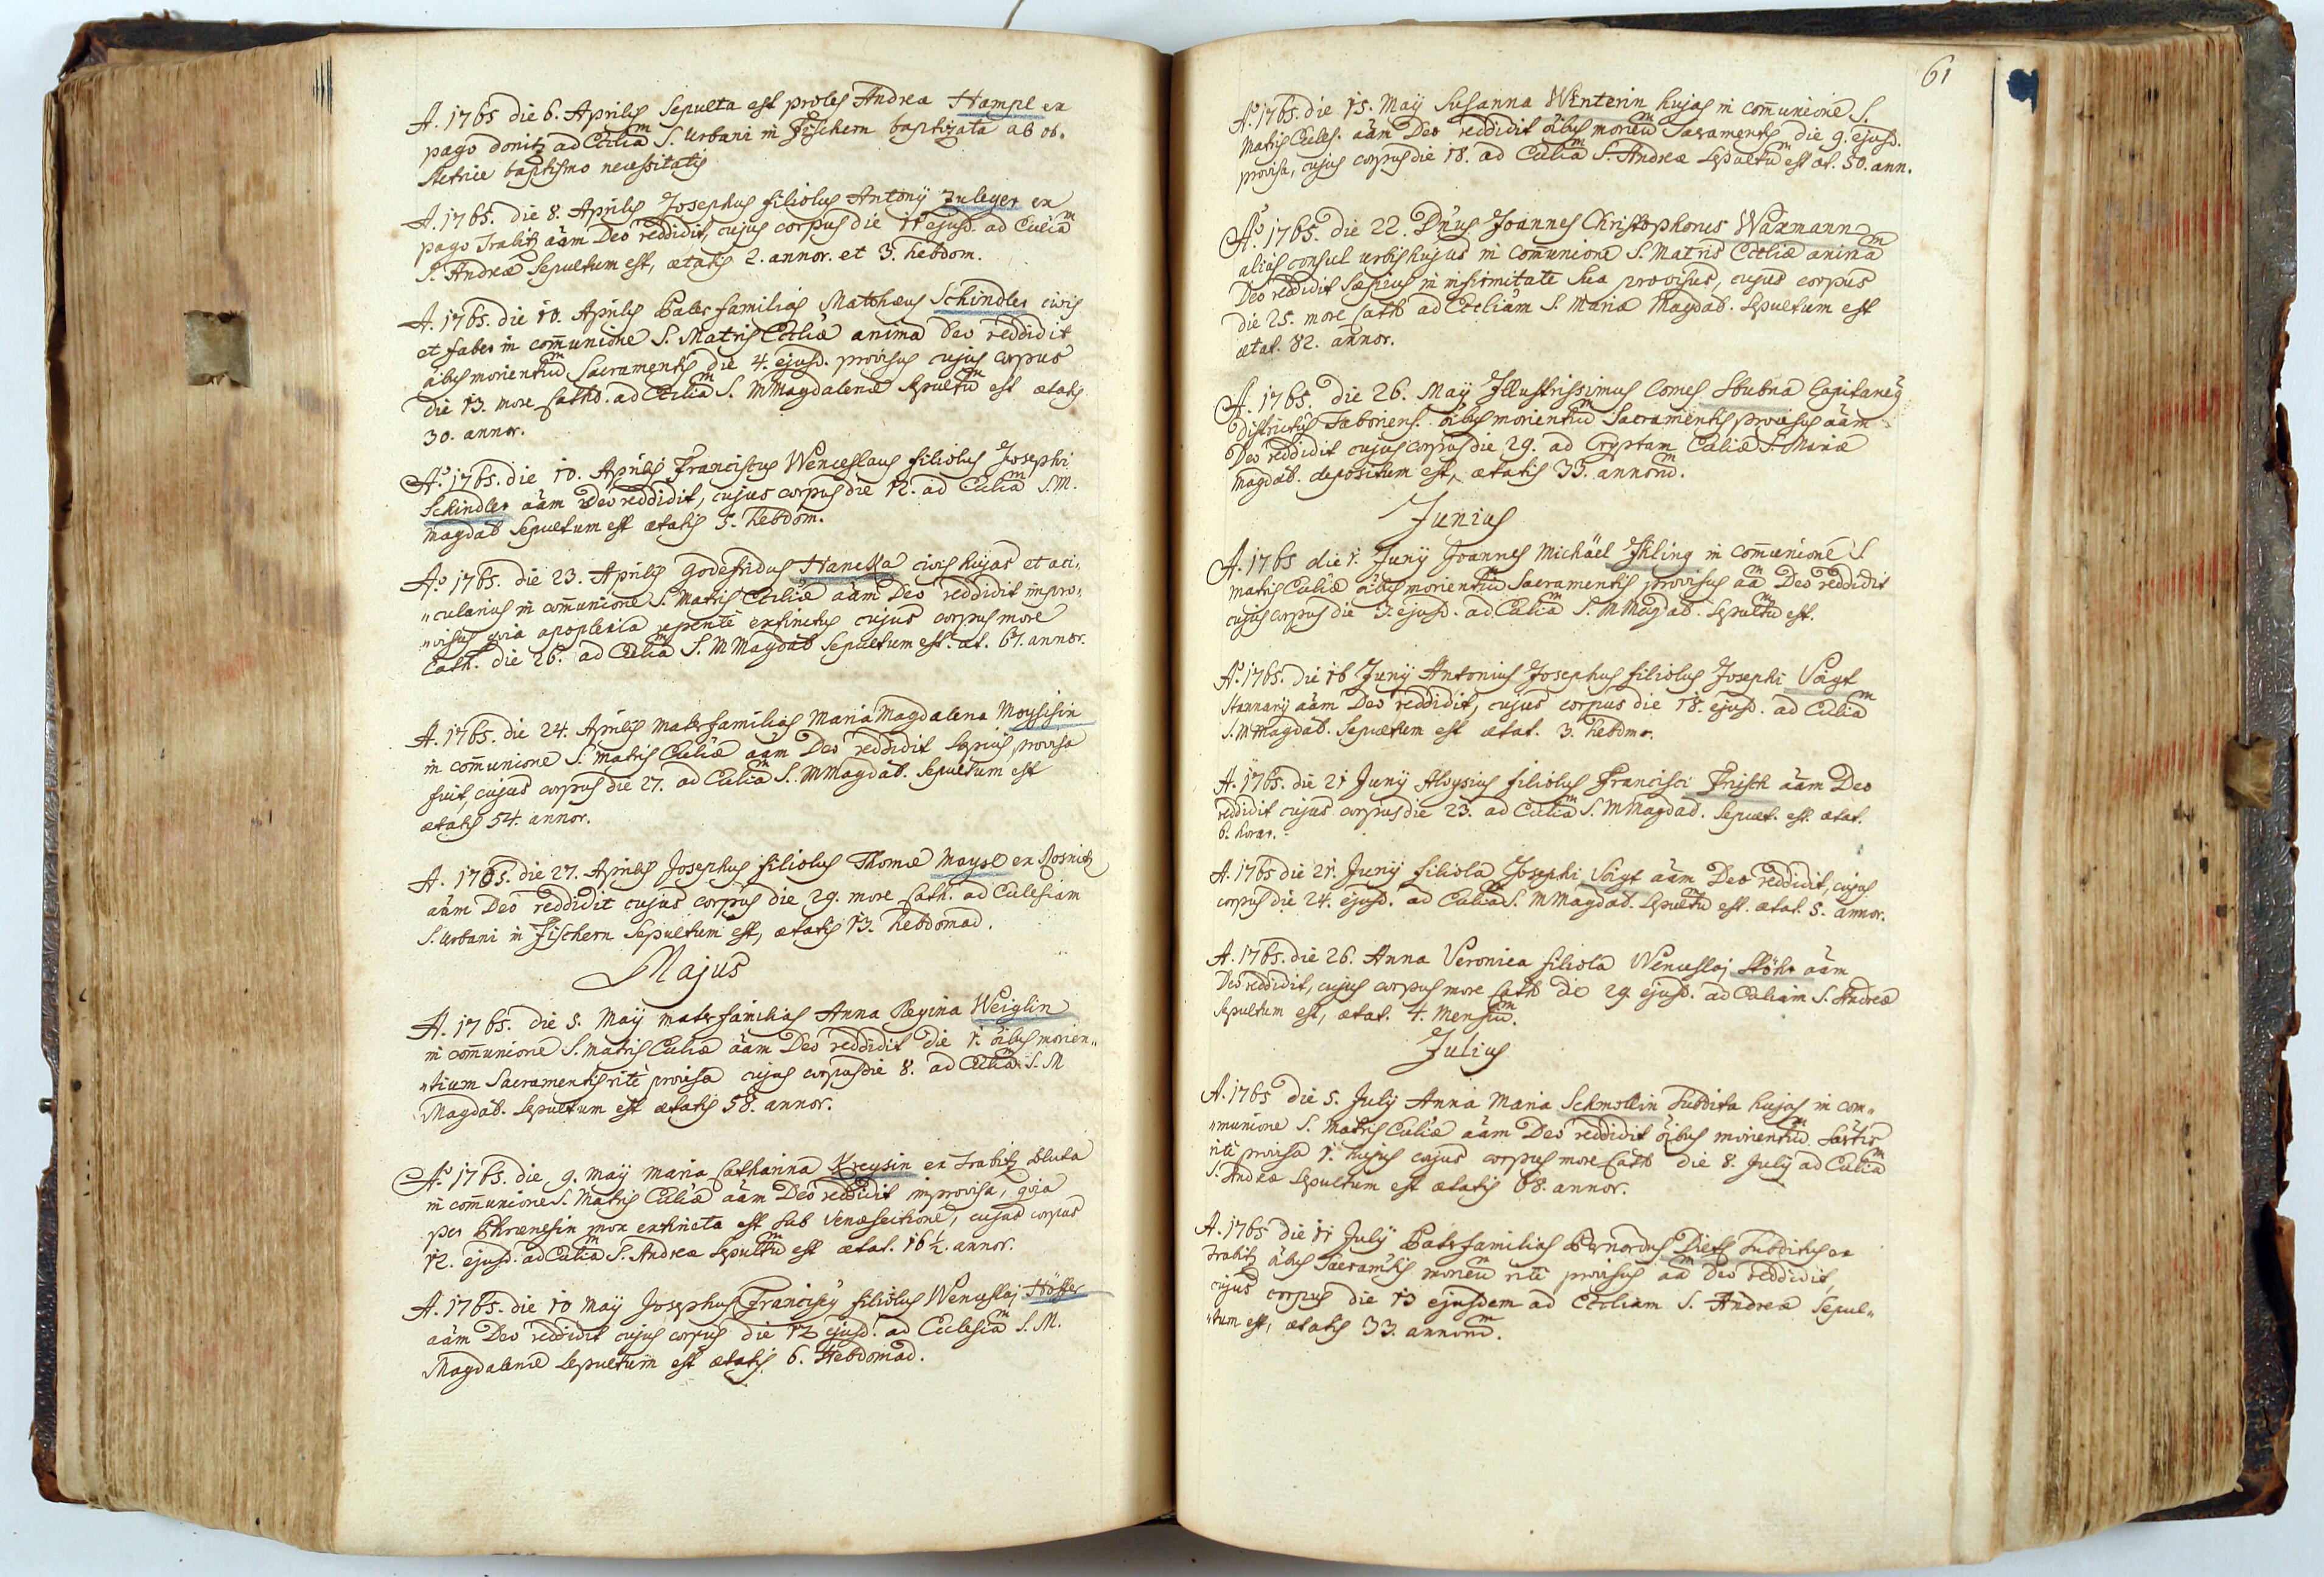 A. 1765 die 6. Aprilis Sepulta est proles Andreæ Hampl ex
pago Donitz ad Ecclia͞m S. Urbani in Fischern baptizata ab ob-
stetrice baptismo necessitatis
A. 1765. die 8. Aprilis Josephus filiolus Antonÿ Zuleger ex
pago Trabitz āām Deo reddidit, cujus corpus die 11 ejusd. ad Eccliam
S. Andreæ Sepultum est, ætatis 2. annor. et 3. hebdom.
A. 1765. die 10. Aprilis Pater familias Mathæus Schindler civis
et faber in com̄unione S. Matris Eccliæ anima Deo reddidit
o͞ibus morientium Sacramentis die 4. ejusd. provisus cujus corpus
die 13. more Cathol. ad Eccliam S. M Magdalenæ Sepultum est ætatis
30. annor.
Ao. 1765. die 10. Aprilis Franciscus Wenceslaus filiolus Josephi
Schindler āām Deo reddidit, cujus corpus die 12. ad Eccliam S. M.
Magdal Sepultum est ætatis 5. hebdom.
Ao 1765. die 23. Aprilis Godefridus Hancka civis hujas et aci,,
,,cularius in com̄unione S. Matris Eccliæ āām Deo reddidit impro,,
,,visus quia apoplexia repente extinctus cujus corpus more
Cath. die 26. ad Eccliam S. M Magdal Sepultum est. æt. 67. annor.
A. 1765. die 24. Aprilis Materfamilias Maria Magdalena Moysisin
in com̄unione S. Matris Eccliæ āām Deo reddidit sæpius provisa
fuit, cujus corpus die 27. ad Eccliam S. M Magdal. Sepultum est
ætatis 54. annor.
A. 1765. die 27. Aprilis Josephus filiolus Thomæ Maysl ex Rosnitz
āām Deo reddidit cujus corpus die 29. more Cath. ad Ecclesiam
S. Urbani in Fischern Sepultum est, ætatis 13. hebdomad.
Majus
A. 1765. die 5. Maÿ Mater familias Anna Regina Weiglin
in com̄unione S. Matris Eccliæ āām Deo reddidit die 1. o͞ibus morien,,
,,tium Sacramentis rite provisa cujus corpus die 8. ad Eccliam S. M
Magdal. Sepultum est ætatis 58. annor.
Ao. 1765. die 9. Maÿ Maria Catharina Kreysin ex Trabitz soluta
in com̄unione S. Matris Eccliæ āām Deo reddidit improvisa, quia
per Phrænesin mox extincta est sub venæsectione, cujus corpus
12. ejusd. ad Eccliam S. Andreæ Sepultum est ætat. 16 ½. annor.
A. 1765. die 10 Maÿ Josephus Franciscus filiolus Wenceslaj Höffer
āām Deo reddidit cujus corpus die 12 ejusd. ad Ecclesiam S. M.
Magdalenæ Sepultum est ætatis 6. Hebdomad.
61
Ao. 1765. die 15. Maÿ Susanna Winterin hujas in com̄unione S.
Matris Eccles. āām Deo reddidit o͞ibus morientium Sacramentis die 9. ejusd.
provisa, cujus corpus die 18. ad Eccliam S. Andreæ Sepultum est æt. 50. ann.
Ao. 1765. die 22. Dn͞us Joannes Christophorus Waxmann
alias consul urbis hujus in Communione S. Matris Eccliæ animam
Deo reddidit sæpius in infirmitate sua provisus, cujus corpus
die 25. more Cath ad Eccliam S. Mariæ Magdal. Sepultum est
ætat. 82. annor.
A. 1765. die 26. Maÿ Illustrissimus Comes Stubna Capitaneus
Districtus Taboriens. o͞ibus morientium Sacramentis provisus āām
Deo reddidit cujus corpus die 29. ad Cryptam Eccliæ S. Mariæ
Magdal. depositum est, ætatis 33. annorum.
Junius
A. 1765 die 1. Junÿ Joannes Michäel Ihling in com̄unione S.
Matris Eccliæ o͞ibus morientium Sacramentis provisus āām Deo reddidit
cujus corpus die 3. ejusd. ad Eccliam S. M Magdal. Sepultum est.
Ao. 1765. die 16 Junÿ Antonius Josephus filiolus Josephi Voigt
Stannarÿ āām Deo reddidit, cujus corpus die 18. ejusd. ad Eccliam
S. M Magdal. Sepultum est ætat. 3. hebdm.
A. 1765. die 21 Junÿ Aloysius filiolus Francisci Frisch āām Deo
reddidit cujus corpus die 23. ad Eccliam S. M Magdal. Sepult. est. ætat.
6. horar.
A. 1765 die 21. Junÿ filiola Josephi Voigt āām Deo reddidit, cujus
corpus die 24. ejusd. ad Eccliam S. M Magdal. Sepultum est. ætat. 5. annor.
A. 1765. die 26. Anna Veronica filiola Wenceslaj Stöhr āām
Deo reddidit, cujus corpus more Cath die 29. ejusd. ad Eccliam S. Andreæ
Sepultum est, ætat. 4. Mensium.
Julius
A. 1765 die 5. Julÿ Anna Maria Schmollin Subdita hujas in com,,
,,munione S. Matris Eccliæ āām Deo reddidit o͞ibus morientium Sac͞tis
rite provisa 1. hujus cujus corpus more Cath die 8. Julÿ ad Eccliam
S. Andreæ Sepultum est ætatis 68. annor.
A. 1765 die 11 Julÿ Paterfamilias Bernardus Dietz Subditus ex
Trabitz o͞ibus Sacram͞tis morien͞m rite provisus āām Deo reddidit,
cujus corpus die 13 ejusdem ad Eccliam S. Andreæ Sepul,,
,,tum est, ætatis 33. annorum.